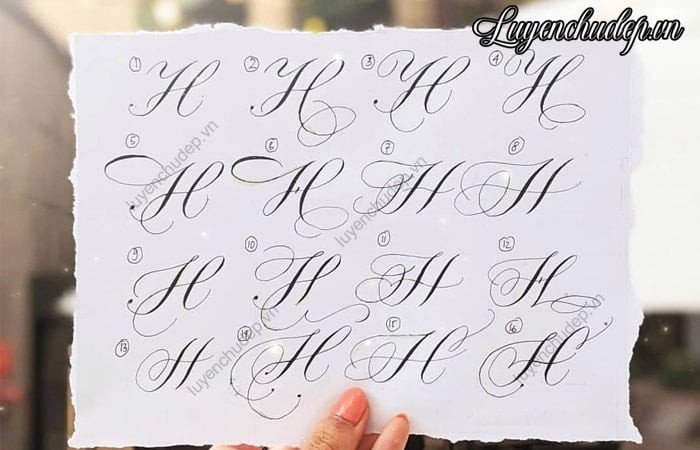 Luyenchudep.vn
① H ② H ③ H ④ H
⑤ H ⑥ H ⑦ H ⑧ H
⑨ H ⑩ H ⑪ H ⑫ H
⑬ H ⑭ H ⑮ H ⑯ H
luyenchudep.vn
luyenchudep.vn
luyenchudep.vn
luyenchudep.vn